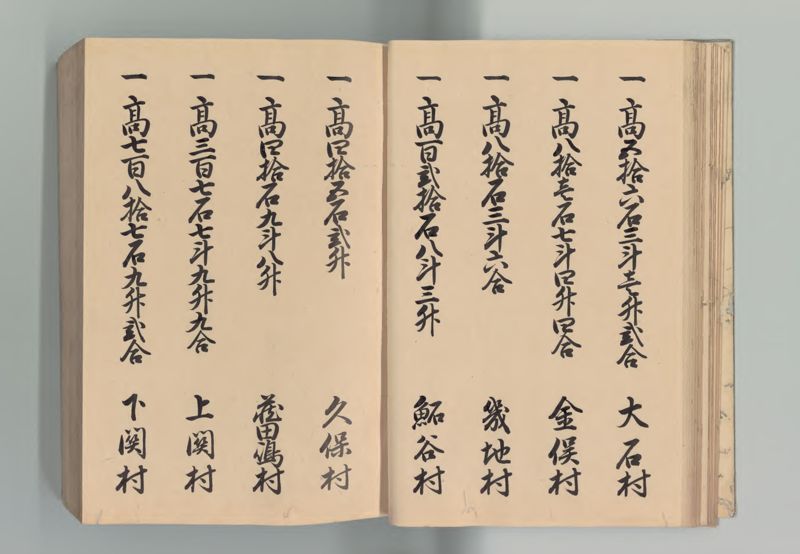 一 高五拾六石三斗壱升弐合 大石村
一 高八拾壱石七斗四升四合 金俣村
一 高八拾石三斗六合 幾地村
一 高百弐拾石八斗三升 鮖谷村
一 高四拾五石弐升 久保村
一 高四拾石九斗八升 蔵田嶋村
一 高三百七石七斗九升九合 上関村
一 高七百八拾七石九升弐合 下関村